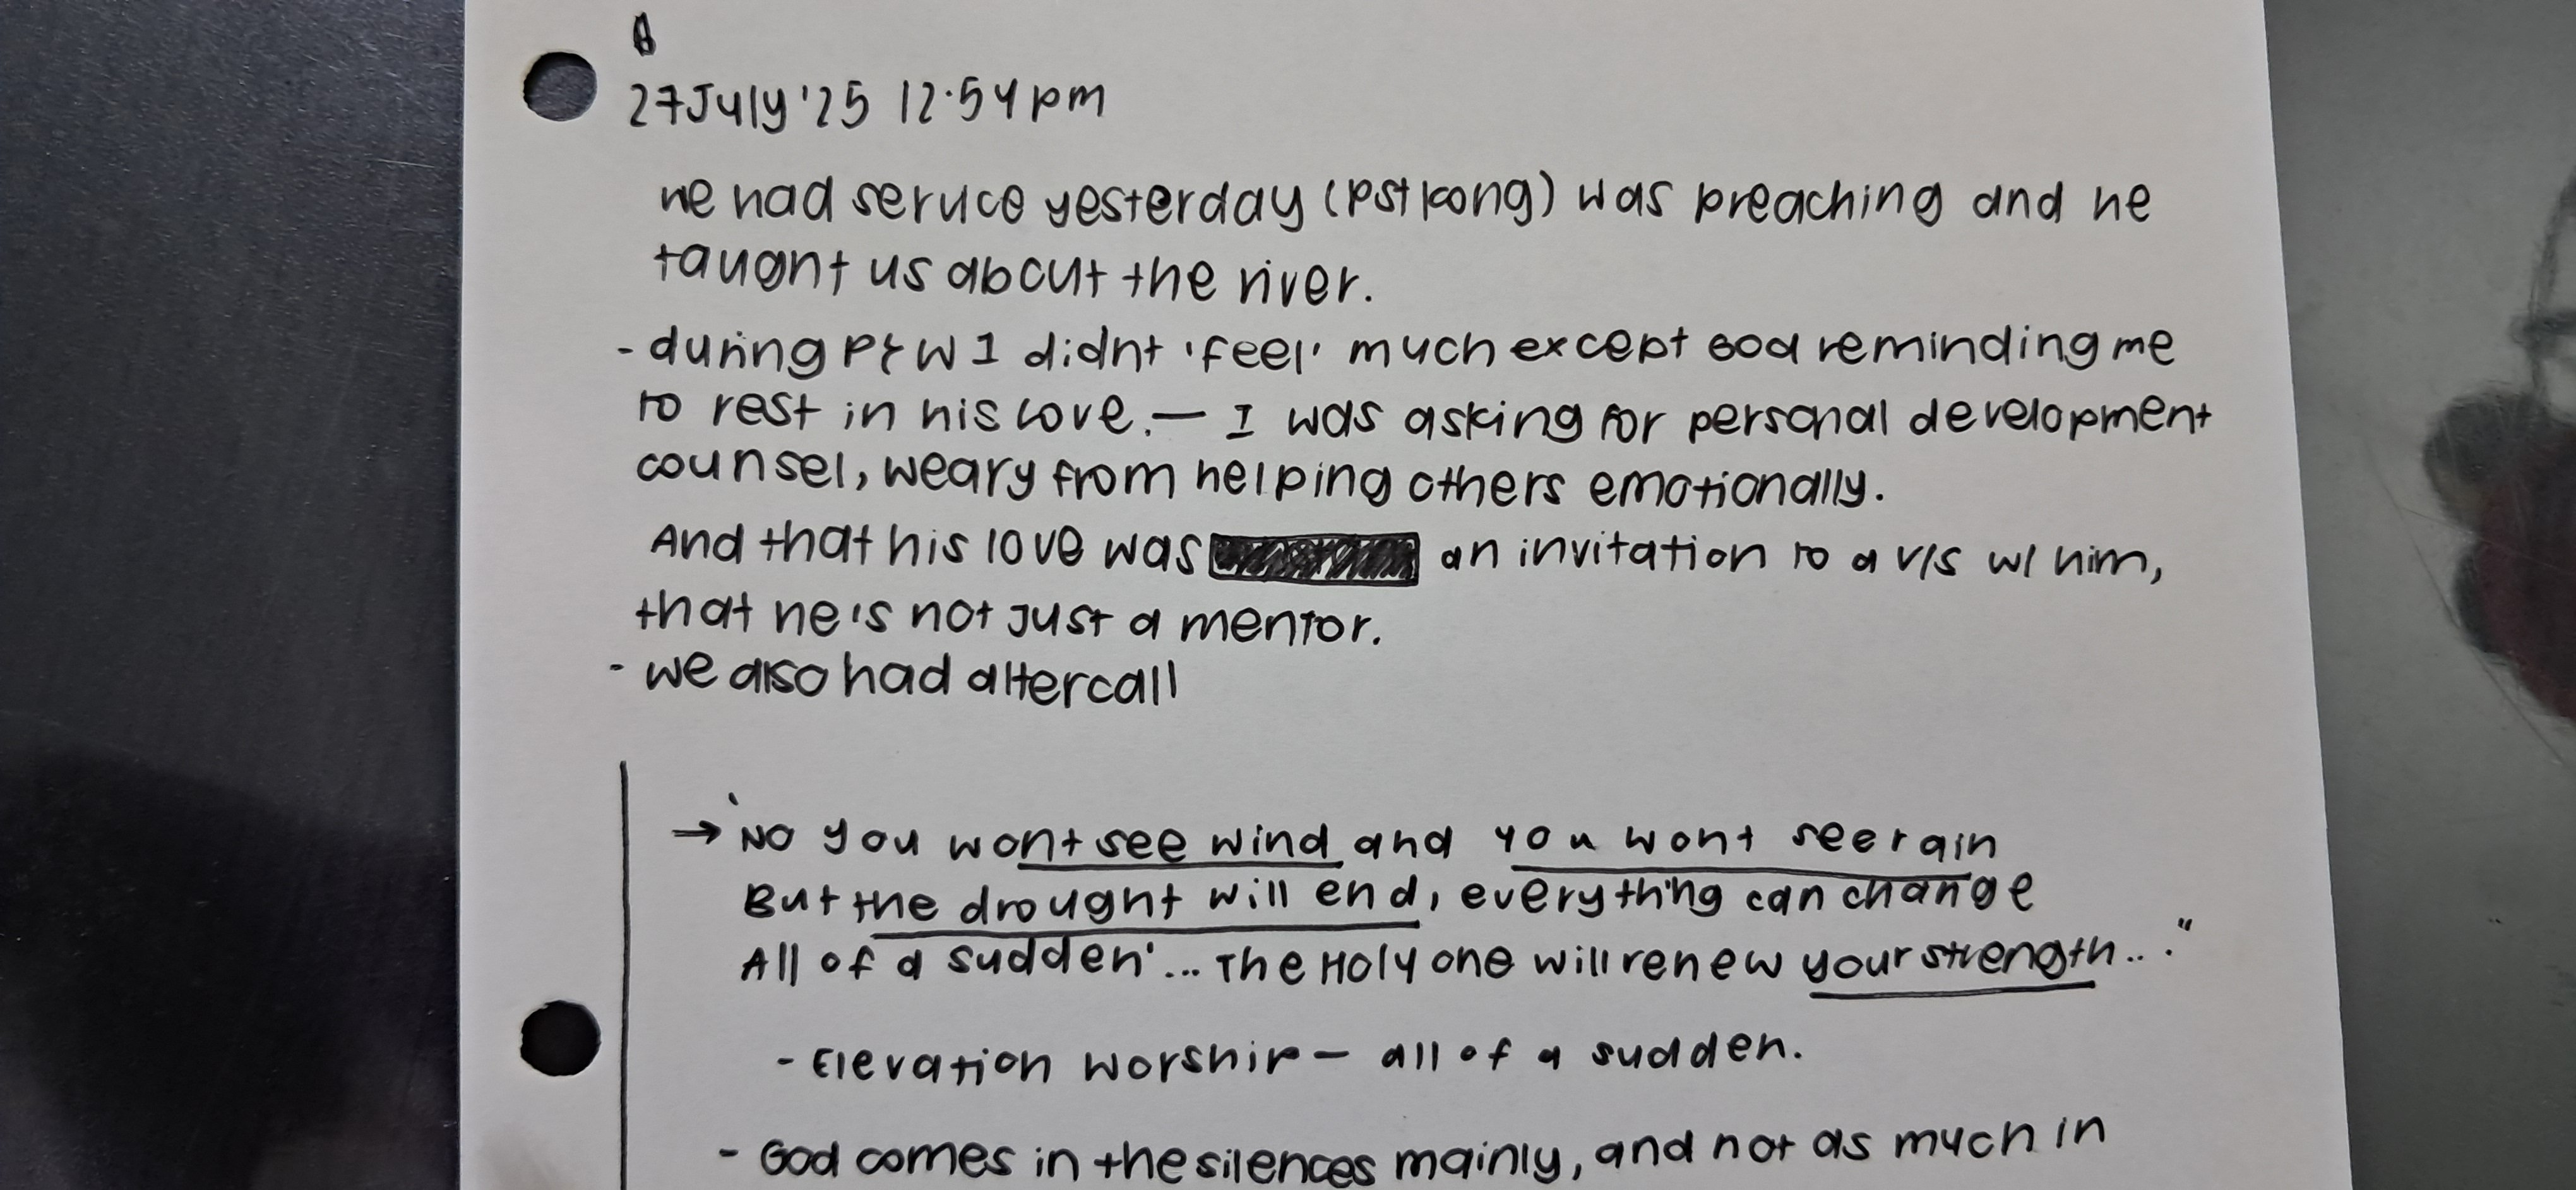 27 July '25 12.54pm
we had service yesterday (pst kong) was preaching and he
taught us about the river.
- during P&W I didnt 'feel' much except God reminding me
to rest in his love. — I was asking for personal development
counsel, weary from helping others emotionally.
And that his love was an invitation to a r/s w/ him,
that he's not just a mentor.
- we also had altercall
→ 'No you wont see wind and you wont see rain
But the drought will end, everything can change
All of a sudden'... The Holy one will renew your strength..."
- Elevation worship — all of a sudden.
- God comes in the silences mainly, and not as much in